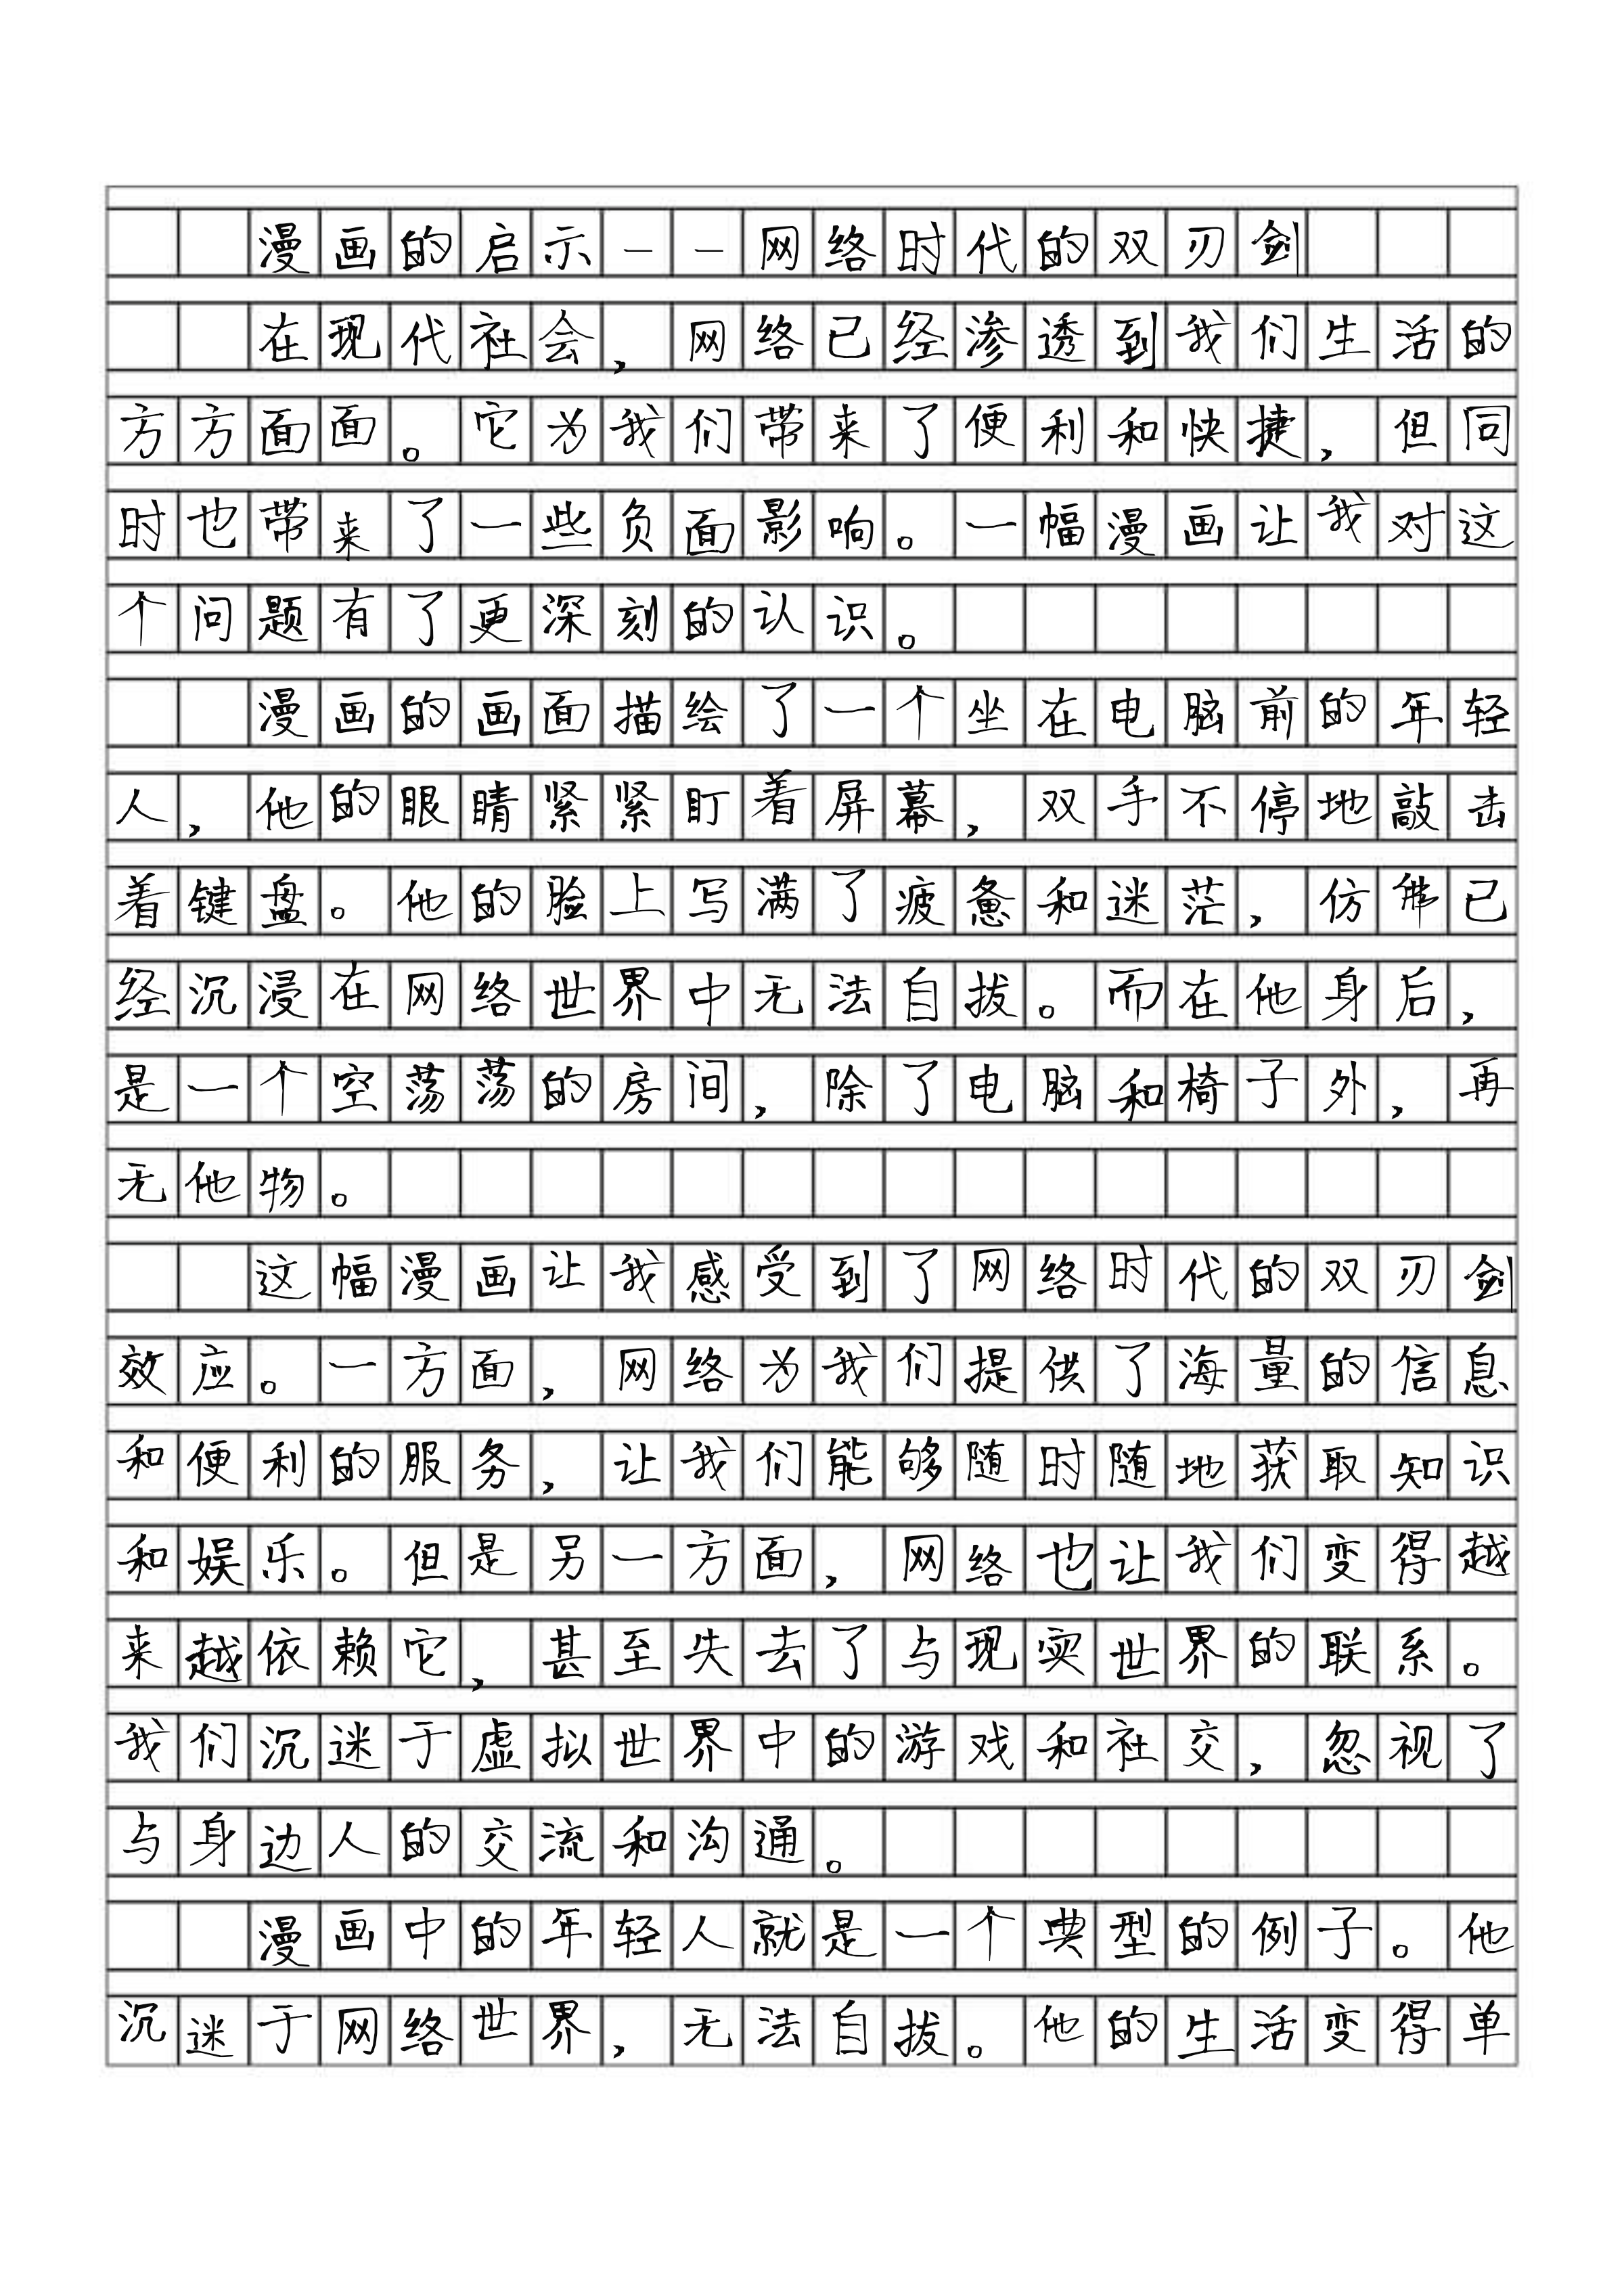 漫画的启示——网络时代的双刃剑
在现代社会，网络已经渗透到我们生活的
方方面面。它为我们带来了便利和快捷，但同
时也带来了一些负面影响。一幅漫画让我对这
个问题有了更深刻的认识。
漫画的画面描绘了一个坐在电脑前的年轻
人，他的眼睛紧紧盯着屏幕，双手不停地敲击
着键盘。他的脸上写满了疲惫和迷茫，仿佛已
经沉浸在网络世界中无法自拔。而在他身后，
是一个空荡荡的房间，除了电脑和椅子外，再
无他物。
这幅漫画让我感受到了网络时代的双刃剑
效应。一方面，网络为我们提供了海量的信息
和便利的服务，让我们能够随时随地获取知识
和娱乐。但是另一方面，网络也让我们变得越
来越依赖它，甚至失去了与现实世界的联系。
我们沉迷于虚拟世界中的游戏和社交，忽视了
与身边人的交流和沟通。
漫画中的年轻人就是一个典型的例子。他
沉迷于网络世界，无法自拔。他的生活变得单